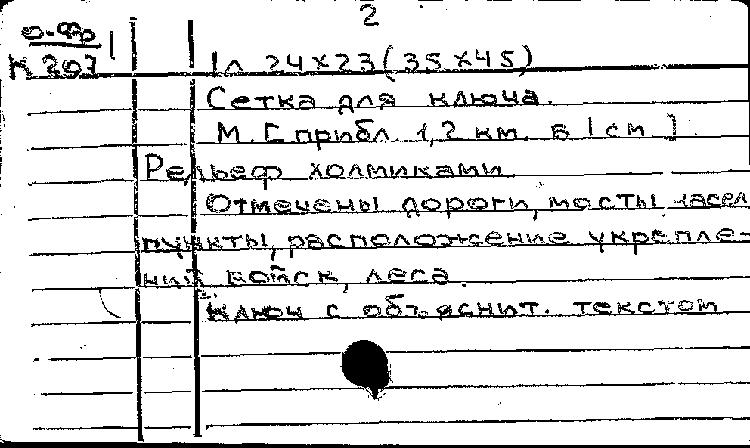 2
о.Фр 1
К 207
1л 24×23 (35×45)
Сетка для ключа.
М. [прибл 1,2 км в 1 cm]
Рельеф холмиками
Отмечены дороги, мосты насел
пункты, расположение укрепле-
ний войск, леса.
Ключ с объяснит. текстом